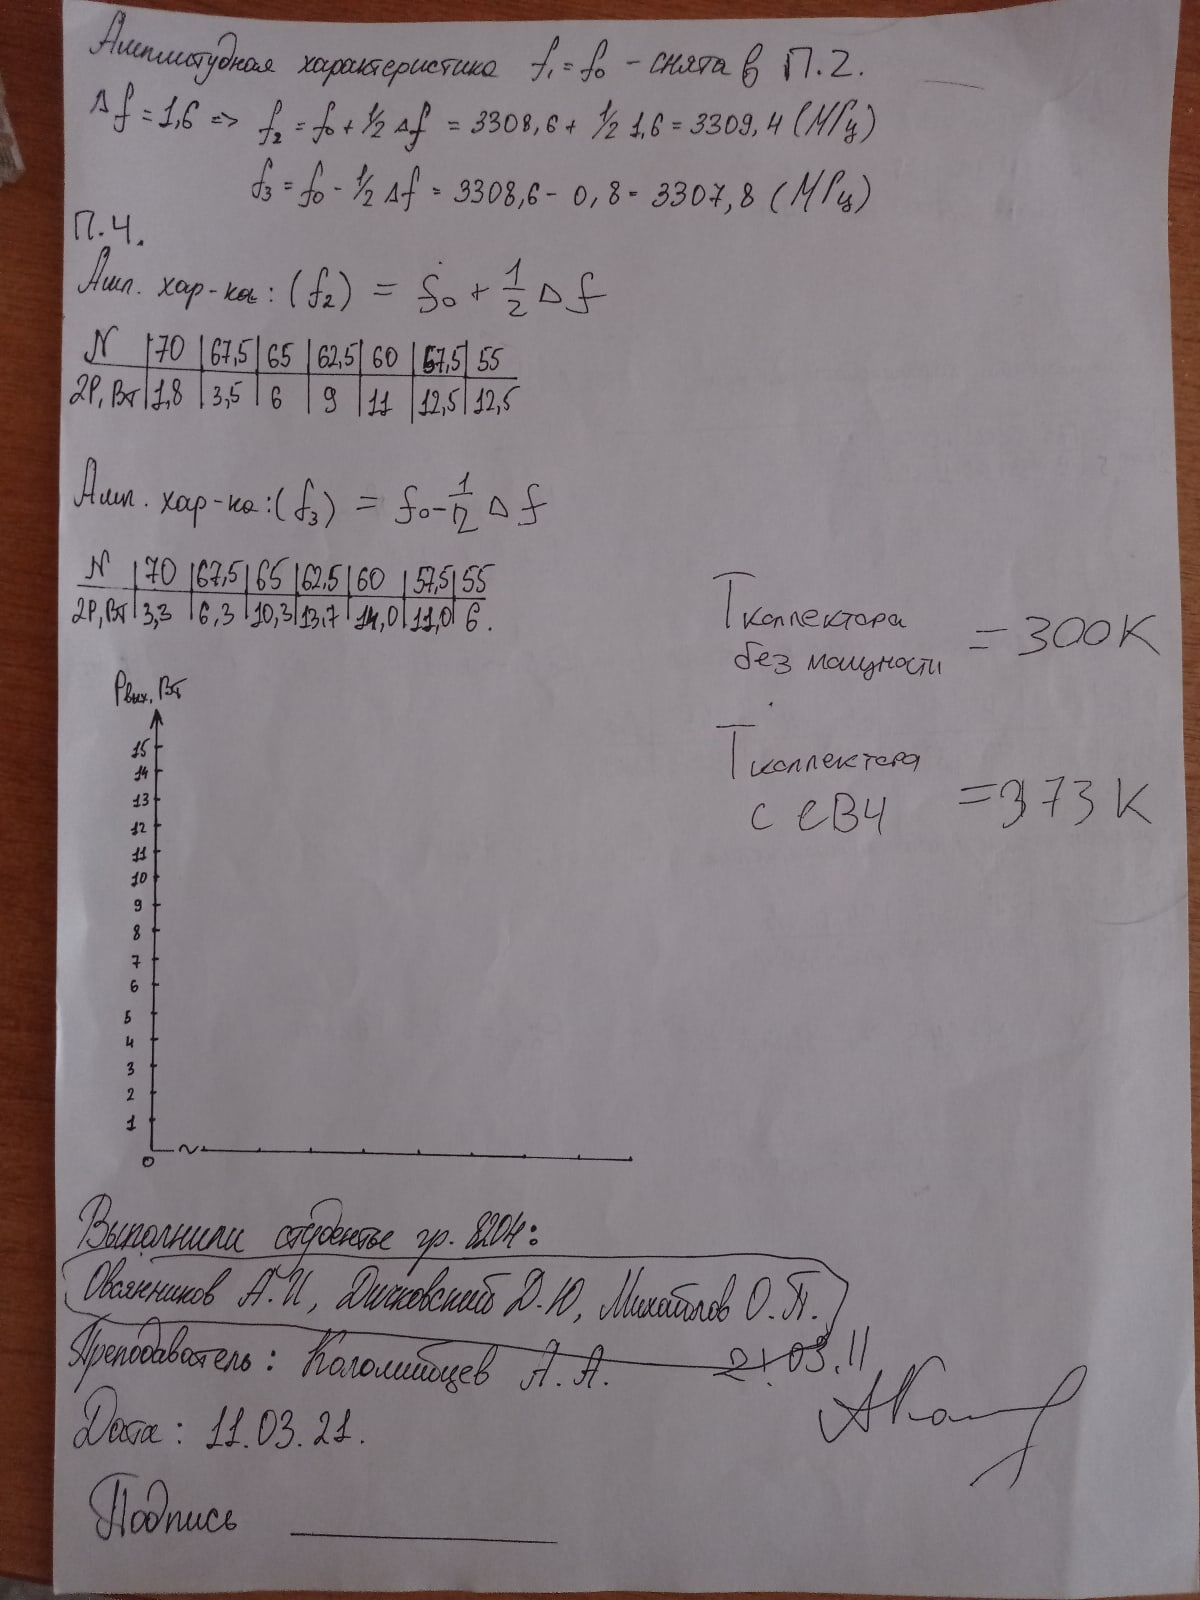 Амплитудная характеристика f₁ = f₀ - снята в П.2.
Δf = 1,6 => f₂ = f₀ + 1/2 Δf = 3308,6 + 1/2 1,6 = 3309,4 (МГц)
f₃ = f₀ - 1/2 Δf = 3308,6 - 0,8 = 3307,8 (МГц)
П.4.
Амп. хар-ка: (f₂) = f₀ + 1/2 Δf
N | 70 | 67,5 | 65 | 62,5 | 60 | 57,5 | 55
2P, Вт | 1,8 | 3,5 | 6 | 9 | 11 | 12,5 | 12,5
Амп. хар-ка: (f₃) = f₀ - 1/2 Δf
N | 70 | 67,5 | 65 | 62,5 | 60 | 57,5 | 55
2P, Вт | 3,3 | 6,3 | 10,3 | 13,7 | 14,0 | 11,0 | 6.
T коллектора
без мощности = 300 К
T коллектора
с СВЧ = 373 К
Pвых, Вт
15
14
13
12
11
10
9
8
7
6
5
4
3
2
1
0
Выполнили студенты гр. 8204:
Овсянников А.И, Дичковский Д.Ю, Михайлов О.П.
Преподаватель: Коломийцев А.А. 21.03.11
Дата: 11.03.21.
Подпись